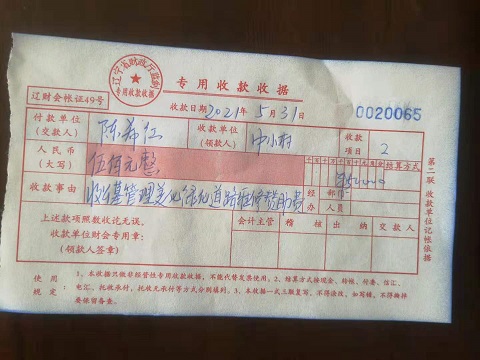 辽宁省财政厅监制
专用收款收据
专用收款收据
辽财会帐证49号
收款日期2021年5月31日
0020065
付款单位
(交款人)
收款单位
(领款人)
收款
项目
2
人民币
(大写)
伍佰元整
千百十万千百十元角分
结算方式
50000
收款事由
收陈墓管理美化绿化道路维修赞助费
经办
部门
人员
上述款项照数收讫无误。
收款单位财会专用章:
(领款人签章)
会计主管
稽核
出纳
交款人
第二联 收款单位记帐依据
使用规定:
1、本收据只做非经营性专用收款收据,不能代替发票使用。2、结算方式按现金、转帐、付委、信汇、
电汇、托收承付,托收无承付等方式分别填列。3、本收据一式三联复写,不得涂改,如写错,不得撕掉
要保留备查。